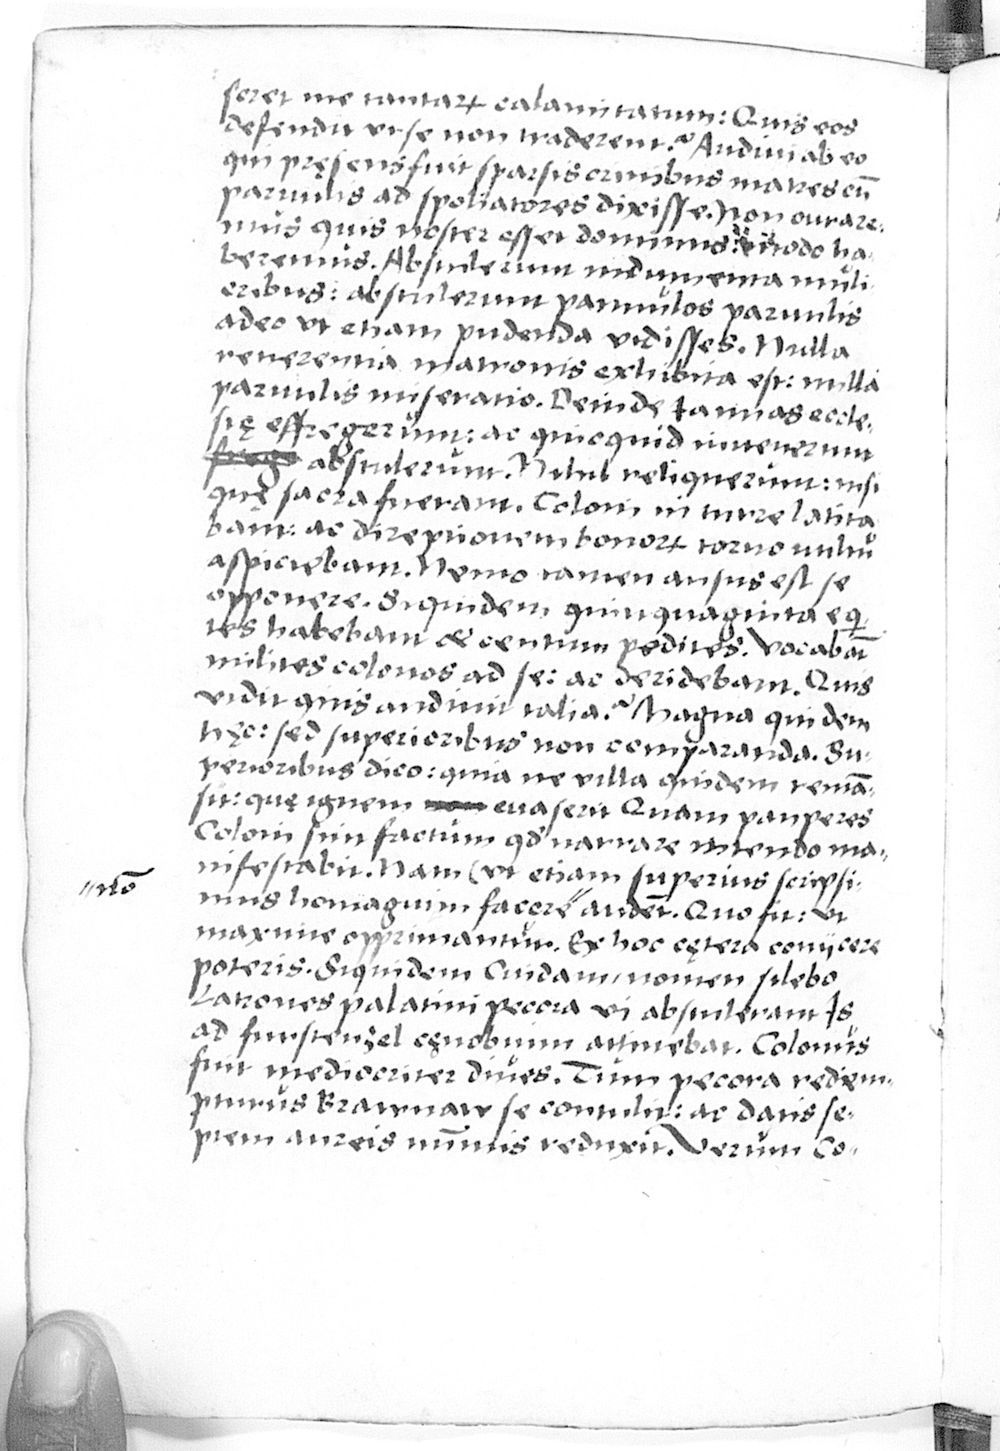 seret me tantaꝝ calamitatum: Quis eos
defendit vt se non traderent? Audiui ab eo
qui pręsens fuit sparsis crinibus matres cū
paruulis ad spoliatores dixisse. Non curare-
mus quis noster esset dominus: modo ha-
beremus. Abstulerunt indumenta muli-
eribus: abstulerunt pannulos paruulis
adeo vt etiam pudenda vidisses. Nulla
reuerentia matronis exhibita est: nulla
paruulis miseratio. Deinde Ianuas eccle-
się effregerunt: ac quicquid inuenerunt
abstulerunt. Nihil reliquerunt: nisi
quę sacra fuerant. Coloni in turre latita
bant: ac direptionem bonoꝝ toruo vultu
aspiciebant. Nemo tamen ausus est se
opponere. Siquidem quinquaginta eqi-
tes habebant & centum pedites. Vocabāt
milites colonos ad se: ac deridebant. Quis
vidit quis audiuit talia? Magna quidem
hęc: sed superioribus non comparanda. Su-
perioribus dico: quia ne villa quidem remā-
sit: quę ignem euaserit Quam pauperes
Coloni sint factum qd narrare intendo ma-
nifestabit. Nam (vt etiam superius scripsi-
"nō
mus homagium facere" audēt. Quo fit: vt
maxime opprimantur. Ex hoc cętera conijcere
poteris. Siquidem Cuidam, nomen silebo
Latrones palatini pecora vi abstulerant Is
ad furstenzel cęnobium attinebat. Colonus
fuit mediocriter diues. Tum pecora redem-
pturus Brawnaw se contulit: ac datis se-
ptem aureis nūmis reduxit. Verum Co-